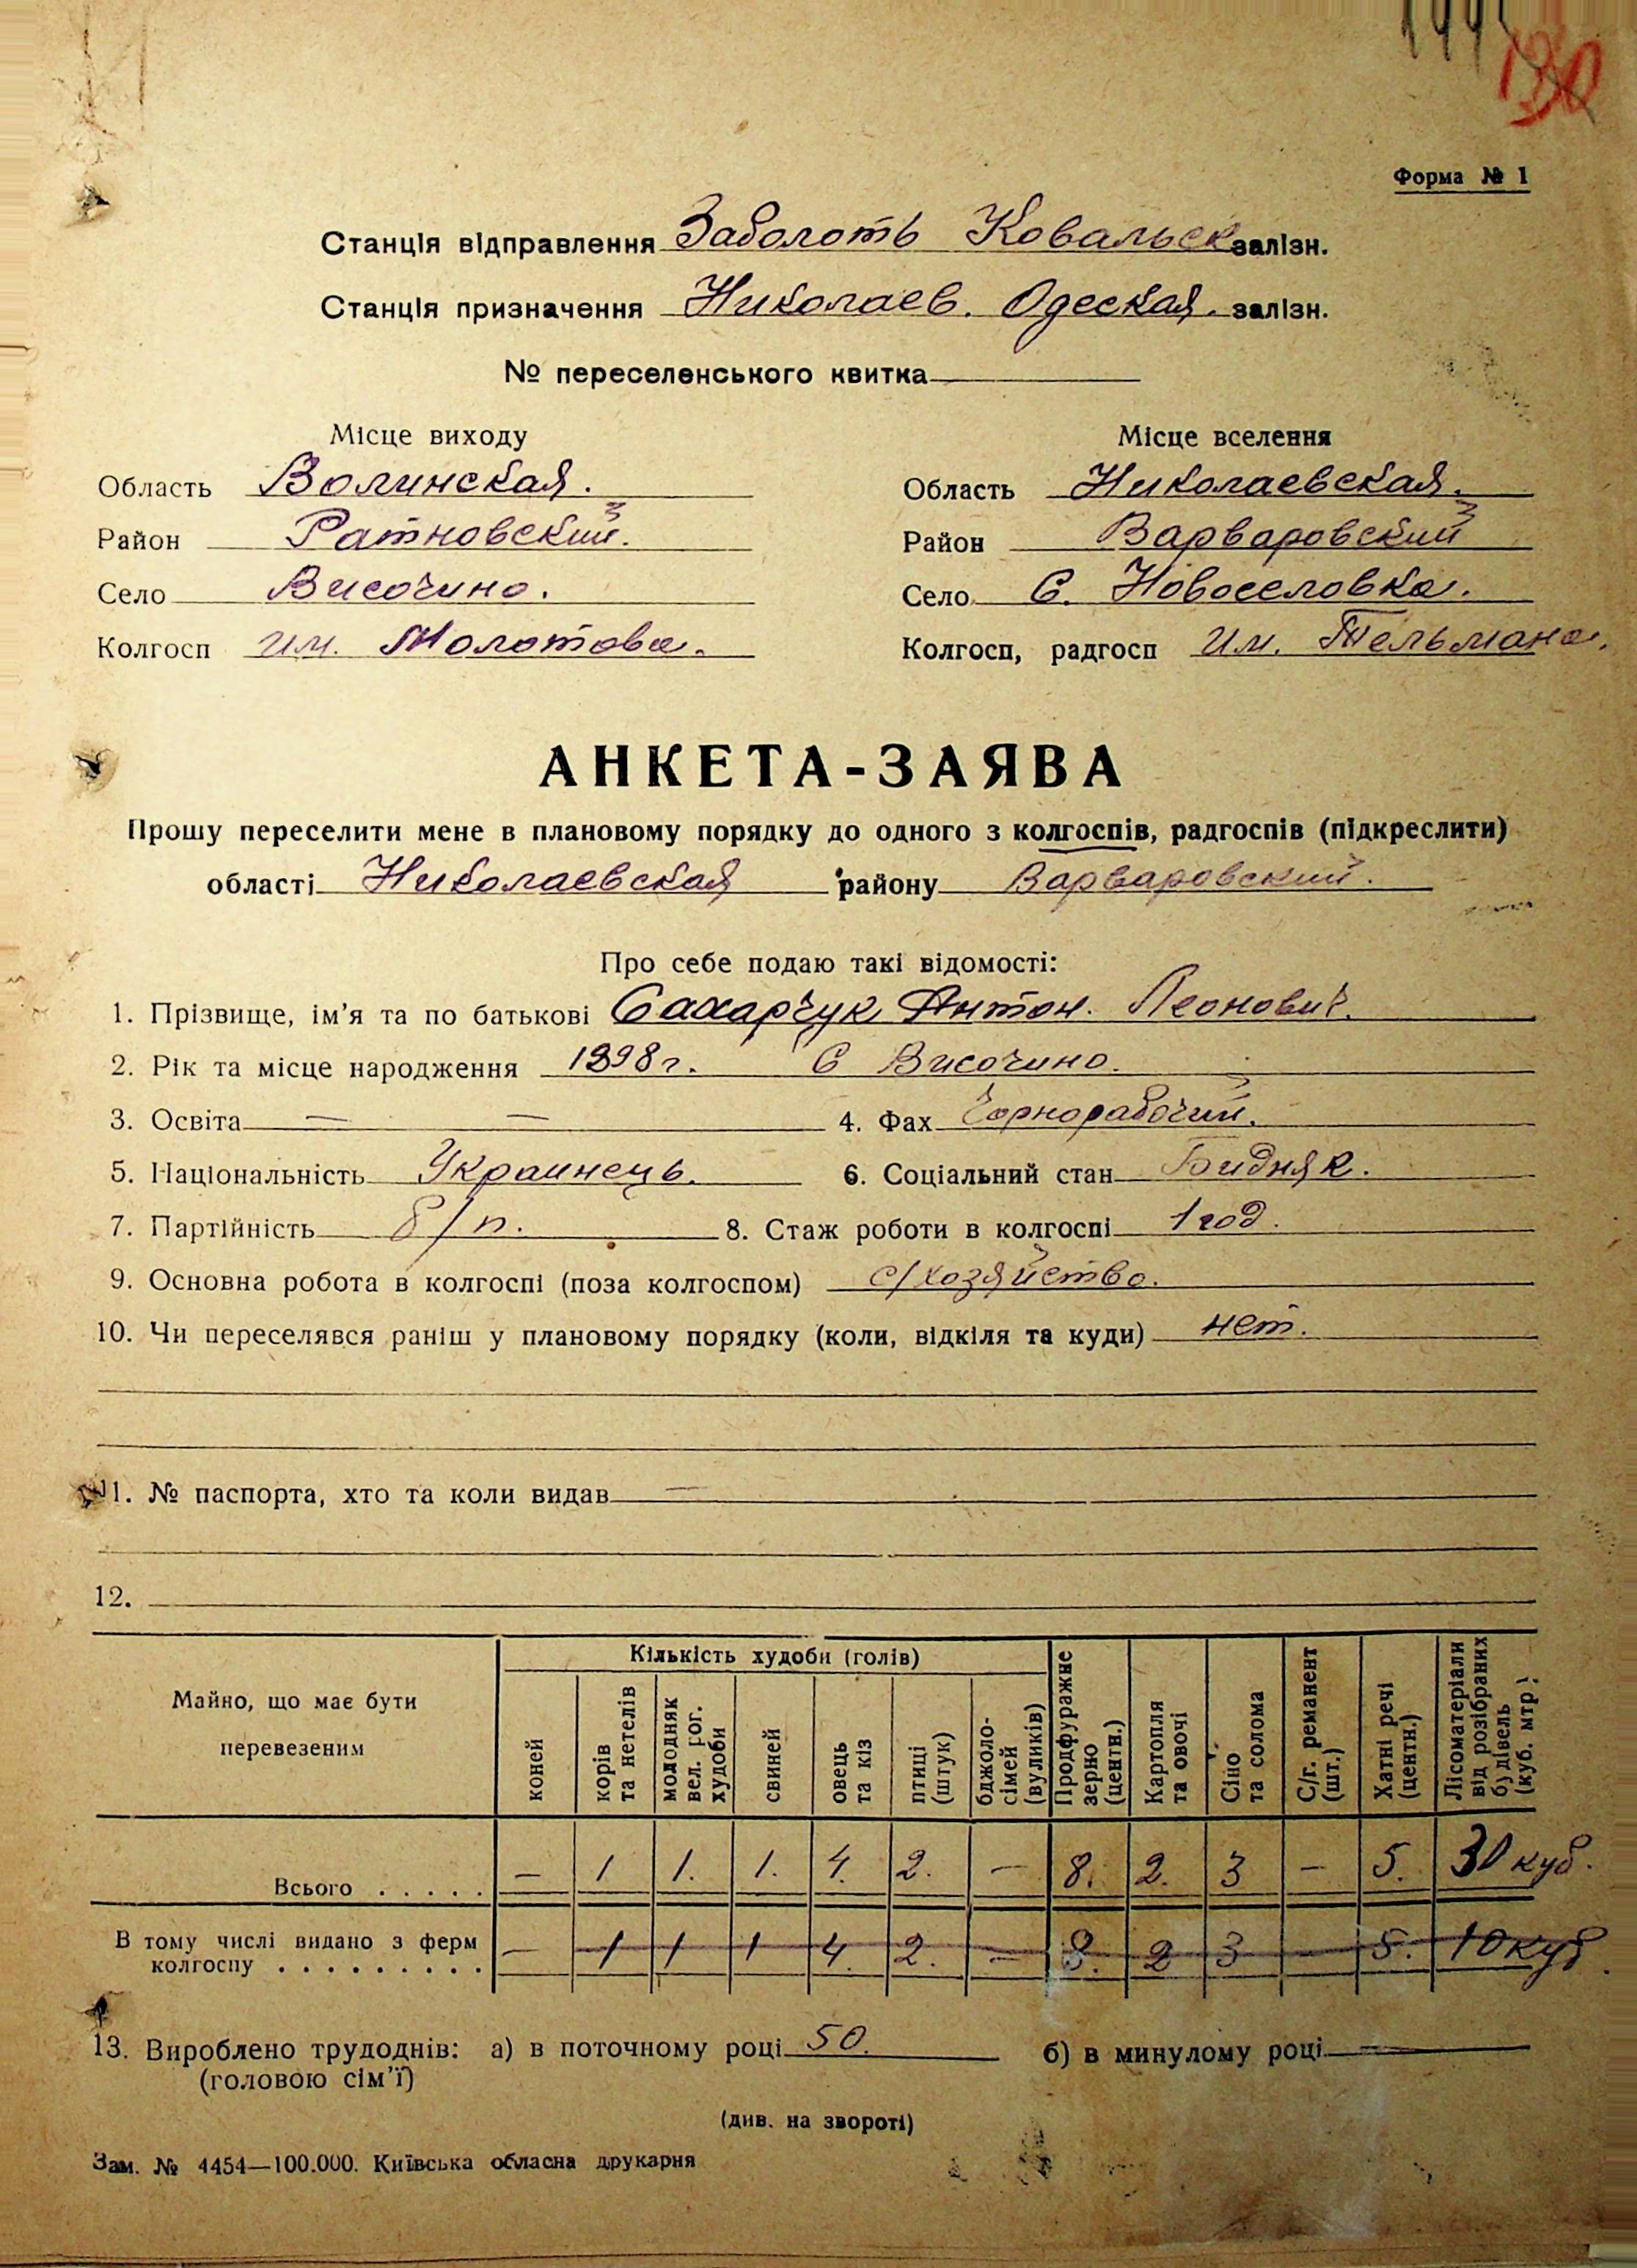 130
Форма № 1
Станція відправлення Заболоть Ковальск залізн.
Станція призначення Николаев. Одеская. залізн.
№ переселенського квитка
Місце виходу Місце вселення
Область Волинская. Область Николаевская.
Район Ратновский. Район Варваровский
Село Височино. Село С. Новоселовка.
Колгосп им. Молотова. Колгосп, радгосп им. Тельмана.
АНКЕТА-ЗАЯВА
Прошу переселити мене в плановому порядку до одного з колгоспів, радгоспів (підкреслити)
області Николаевская району Варваровский.
Про себе подаю такі відомості:
1. Прізвище, ім'я та по батькові Сахарчук Антон. Леонович.
2. Рік та місце народження 1898 г. С Височино.
3. Освіта — — 4. Фах Чорнорабочий.
5. Національність Украинець. 6. Соціальний стан Бидняк.
7. Партійність б/п. 8. Стаж роботи в колгоспі 1 год.
9. Основна робота в колгоспі (поза колгоспом) с/хозяйство.
10. Чи переселявся раніш у плановому порядку (коли, відкіля та куди) нет.
11. № паспорта, хто та коли видав —
12.
Майно, що має бути перевезеним
Кількість худоби (голів)
коней
корів та нетелів
молодняк вел. рог. худоби
свиней
овець та кіз
птиці (штук)
бджоло-сімей (вуликів)
Продфуражне зерно (центн.)
Картопля та овочі
Сіно та солома
С/г. реманент (шт.)
Хатні речі (центн.)
Лісоматеріали від розібраних будівель (куб. мтр)
Всього . . . . . — 1 1. 1. 4. 2. — 8. 2. 3 — 5. 30 куб.
В тому числі видано з ферм колгоспу . . . . . . . . . — 1 1 1 4. 2. — 8. 2 3 — 5. 10 куб
13. Вироблено трудоднів: а) в поточному році 50. б) в минулому році —
(головою сім'ї)
(див. на звороті)
Зам. № 4454—100.000. Київська обласна друкарня